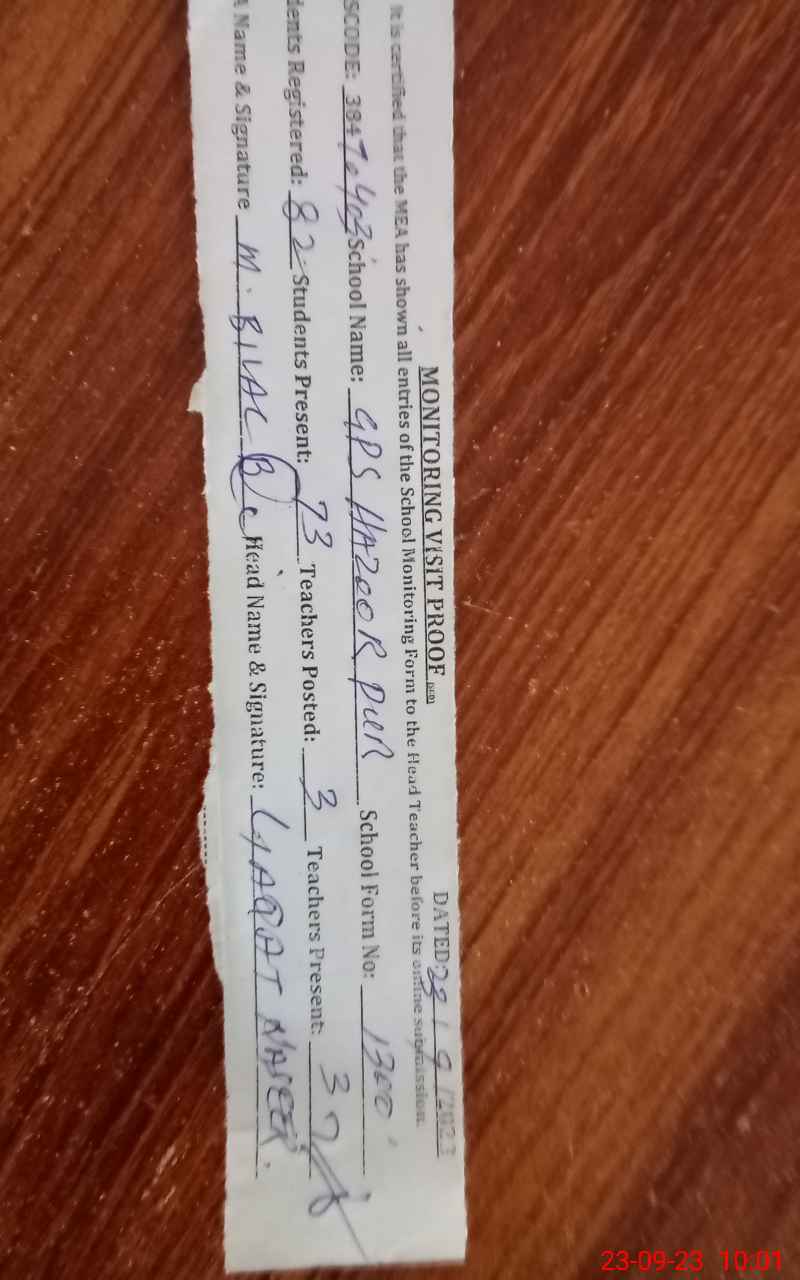 MONITORING VISIT PROOF DATED: 23/9/2023
It is certified that the MEA has shown all entries of the School Monitoring Form to the Head Teacher before its online submission.
SCODE: 38470403 School Name: GPS HAZOOR PUR School Form No: 1300
dents Registered: 82 Students Present: 73 Teachers Posted: 3 Teachers Present: 3
A Name & Signature M. BILAL Head Name & Signature: LYAQAT NASEER
23-09-23 10:01